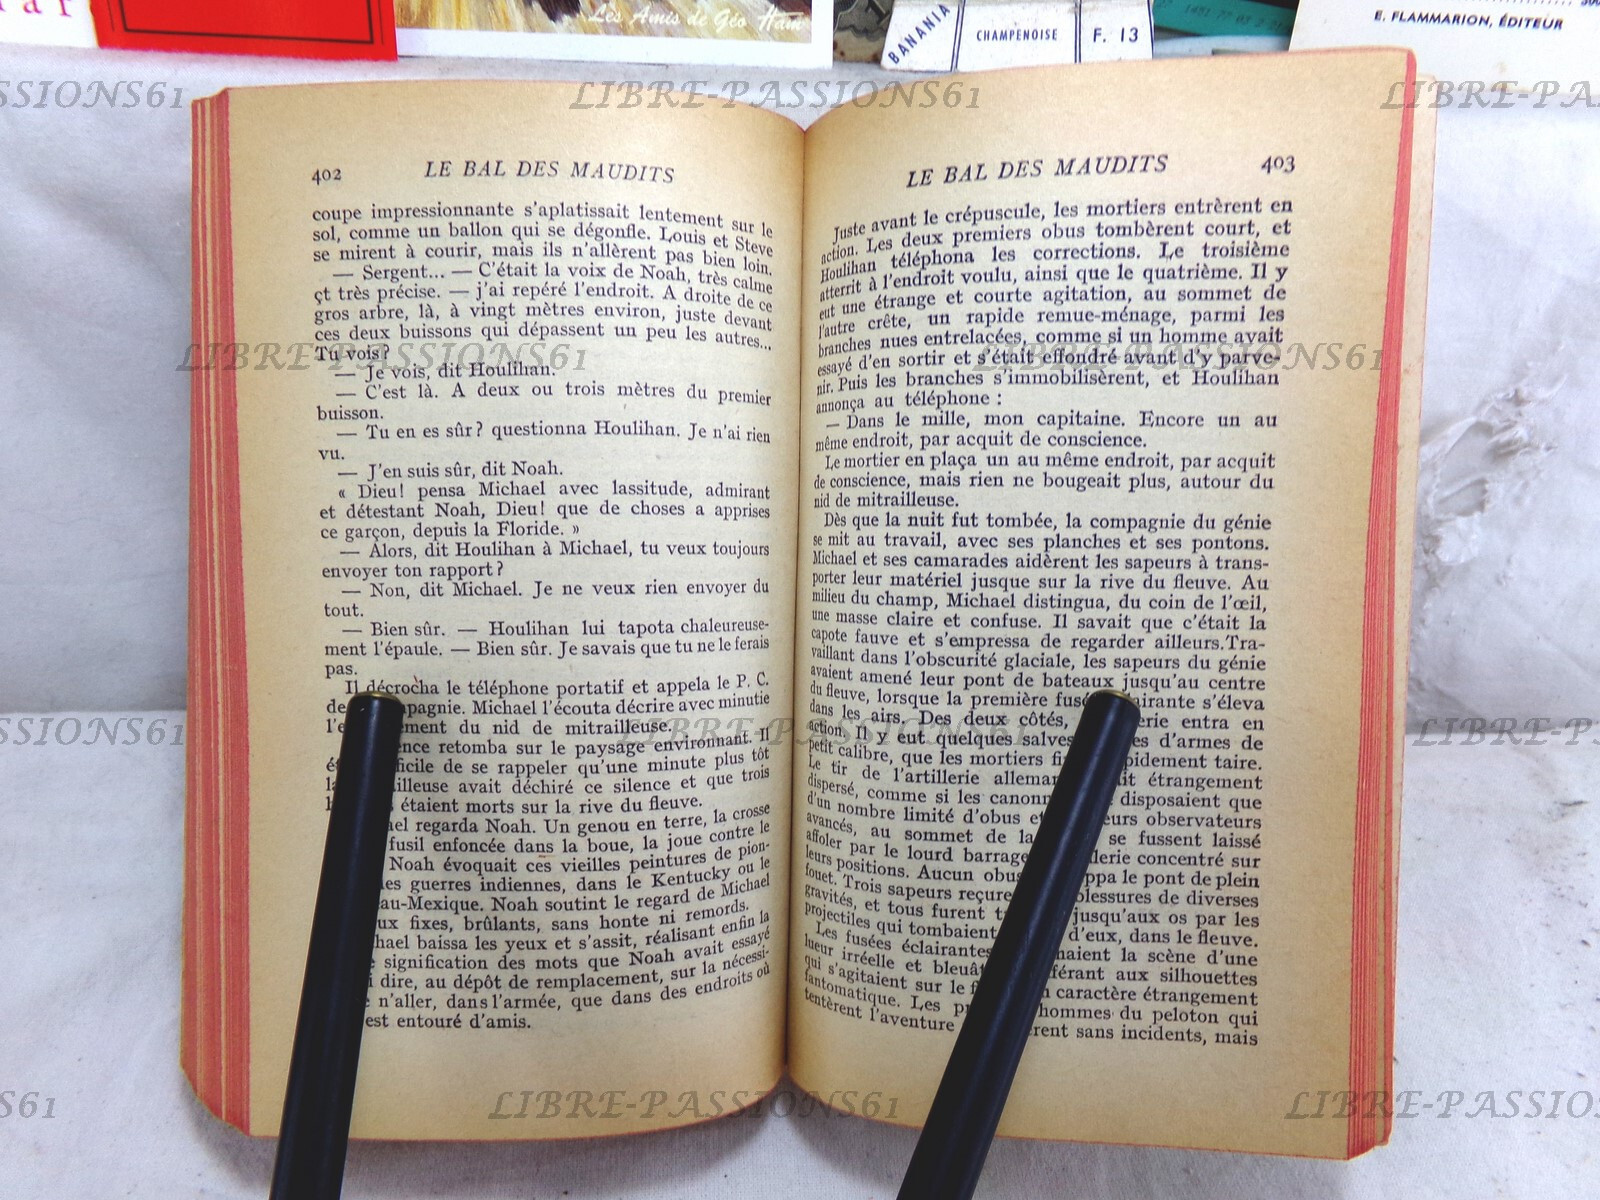 ar
Les Amis de Géo Ham
BANANIA
CHAMPENOISE
F. 13
E. FLAMMARION, ÉDITEUR
LIBRE-PASSIONS61
402 LE BAL DES MAUDITS
coupe impressionnante s'aplatissait lentement sur le
sol, comme un ballon qui se dégonfle. Louis et Steve
se mirent à courir, mais ils n'allèrent pas bien loin.
— Sergent... — C'était la voix de Noah, très calme
çt très précise. — j'ai repéré l'endroit. A droite de ce
gros arbre, là, à vingt mètres environ, juste devant
ces deux buissons qui dépassent un peu les autres...
Tu vois?
— Je vois, dit Houlihan.
— C'est là. A deux ou trois mètres du premier
buisson.
— Tu en es sûr? questionna Houlihan. Je n'ai rien
vu.
— J'en suis sûr, dit Noah.
« Dieu! pensa Michael avec lassitude, admirant
et détestant Noah, Dieu! que de choses a apprises
ce garçon, depuis la Floride. »
— Alors, dit Houlihan à Michael, tu veux toujours
envoyer ton rapport?
— Non, dit Michael. Je ne veux rien envoyer du
tout.
— Bien sûr. — Houlihan lui tapota chaleureuse-
ment l'épaule. — Bien sûr. Je savais que tu ne le ferais
pas.
Il décrocha le téléphone portatif et appela le P. C.
de pagnie. Michael l'écouta décrire avec minutie
l'e ment du nid de mitrailleuse.
ence retomba sur le paysage environnant. Il
ét ficile de se rappeler qu'une minute plus tôt
la illeuse avait déchiré ce silence et que trois
h étaient morts sur la rive du fleuve.
el regarda Noah. Un genou en terre, la crosse
fusil enfoncée dans la boue, la joue contre le
Noah évoquait ces vieilles peintures de pion-
les guerres indiennes, dans le Kentucky ou le
au-Mexique. Noah soutint le regard de Michael
ux fixes, brûlants, sans honte ni remords.
hael baissa les yeux et s'assit, réalisant enfin la
signification des mots que Noah avait essayé
i dire, au dépôt de remplacement, sur la nécessi-
e n'aller, dans l'armée, que dans des endroits où
est entouré d'amis.
LE BAL DES MAUDITS 403
Juste avant le crépuscule, les mortiers entrèrent en
action. Les deux premiers obus tombèrent court, et
Houlihan téléphona les corrections. Le troisième
atterrit à l'endroit voulu, ainsi que le quatrième. Il y
eut une étrange et courte agitation, au sommet de
l'autre crête, un rapide remue-ménage, parmi les
branches nues entrelacées, comme si un homme avait
essayé d'en sortir et s'était effondré avant d'y parve-
nir. Puis les branches s'immobilisèrent, et Houlihan
annonça au téléphone :
— Dans le mille, mon capitaine. Encore un au
même endroit, par acquit de conscience.
Le mortier en plaça un au même endroit, par acquit
de conscience, mais rien ne bougeait plus, autour du
nid de mitrailleuse.
Dès que la nuit fut tombée, la compagnie du génie
se mit au travail, avec ses planches et ses pontons.
Michael et ses camarades aidèrent les sapeurs à trans-
porter leur matériel jusque sur la rive du fleuve. Au
milieu du champ, Michael distingua, du coin de l'œil,
une masse claire et confuse. Il savait que c'était la
capote fauve et s'empressa de regarder ailleurs.Tra-
vaillant dans l'obscurité glaciale, les sapeurs du génie
avaient amené leur pont de bateaux jusqu'au centre
du fleuve, lorsque la première fusé airante s'éleva
dans les airs. Des deux côtés, erie entra en
action. Il y eut quelques salves es d'armes de
petit calibre, que les mortiers fi pidement taire.
Le tir de l'artillerie alleman it étrangement
dispersé, comme si les canonn disposaient que
d'un nombre limité d'obus et eurs observateurs
avancés, au sommet de la se fussent laissé
affoler par le lourd barrage lerie concentré sur
leurs positions. Aucun obus ppa le pont de plein
fouet. Trois sapeurs reçure blessures de diverses
gravités, et tous furent t jusqu'aux os par les
projectiles qui tombaient d'eux, dans le fleuve.
Les fusées éclairantes naient la scène d'une
lueur irréelle et bleuât férant aux silhouettes
qui s'agitaient sur le f n caractère étrangement
fantomatique. Les pr hommes du peloton qui
tentèrent l'aventure èrent sans incidents, mais